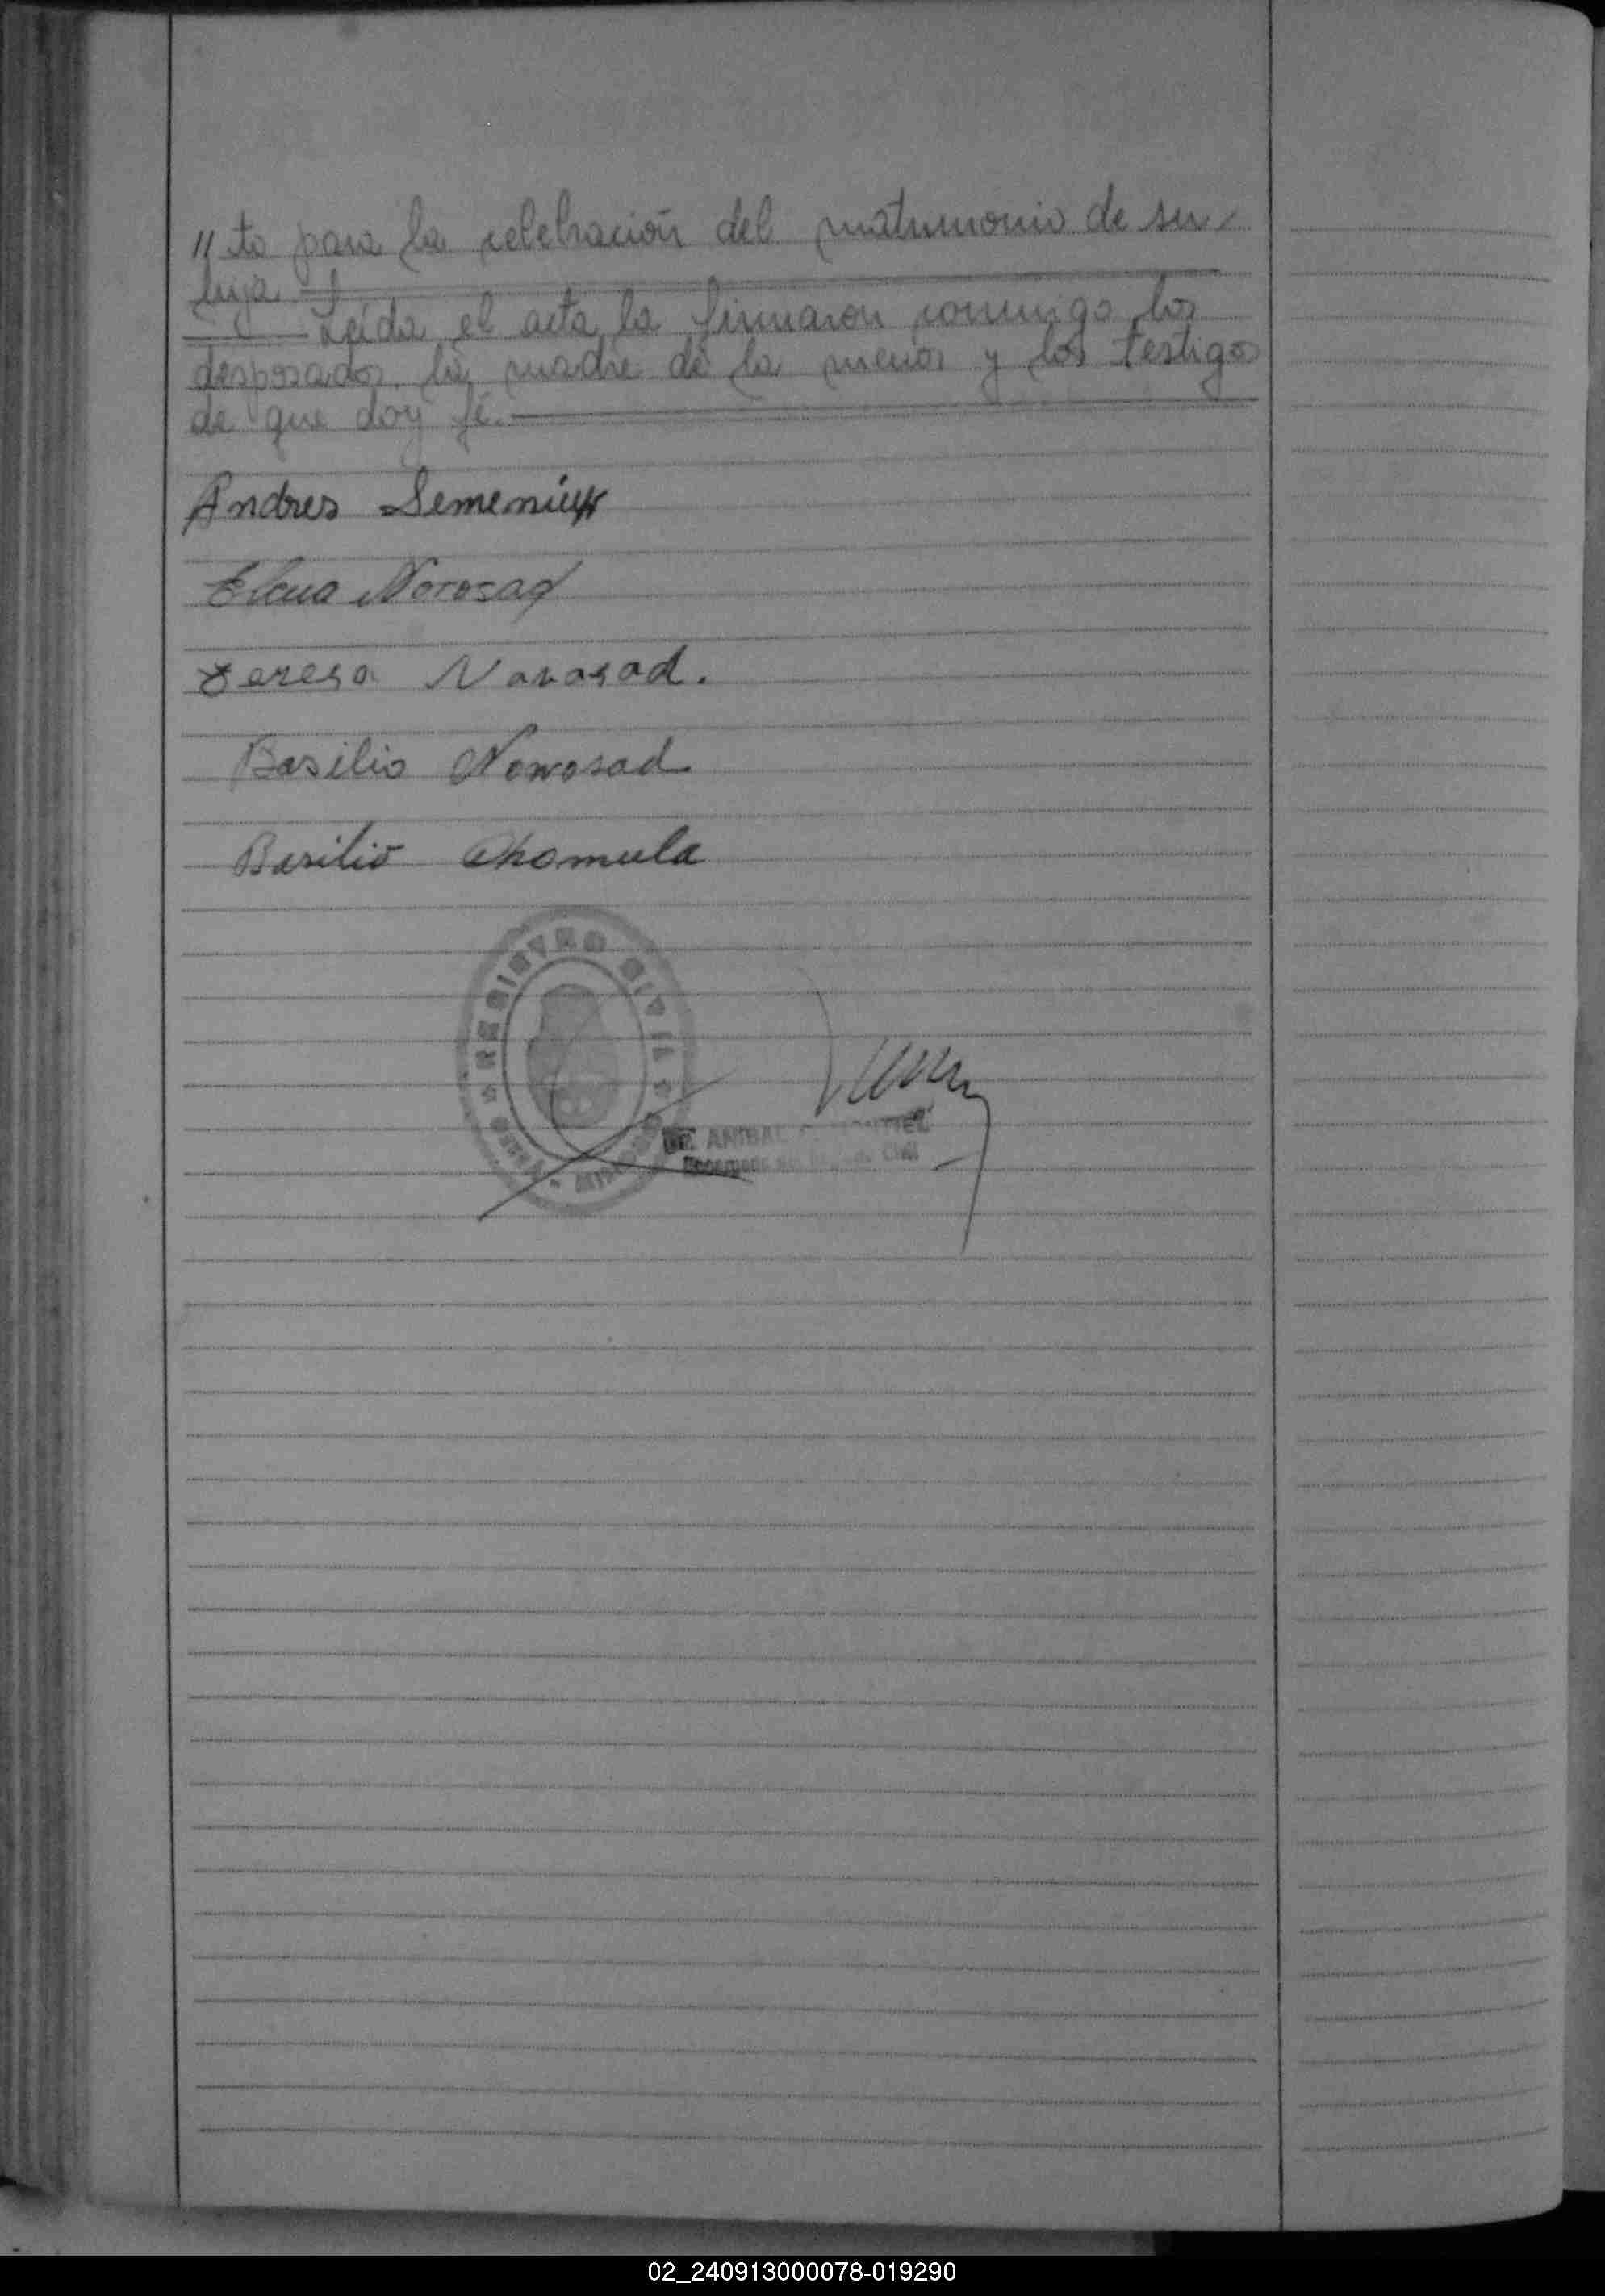 "to para la celebración del matrimonio de su
hija
Leida el acta la firmaron conmigo los
desposados, la madre de la menor y los testigos
de que doy fé.
Andres Semeniuk
Elena Novosad
Teresa Novosad.
Basilio Nowosad
Basilio Chomula
REGISTRO CIVIL
MISIONES
ANIBAL
Civil
02_240913000078-019290